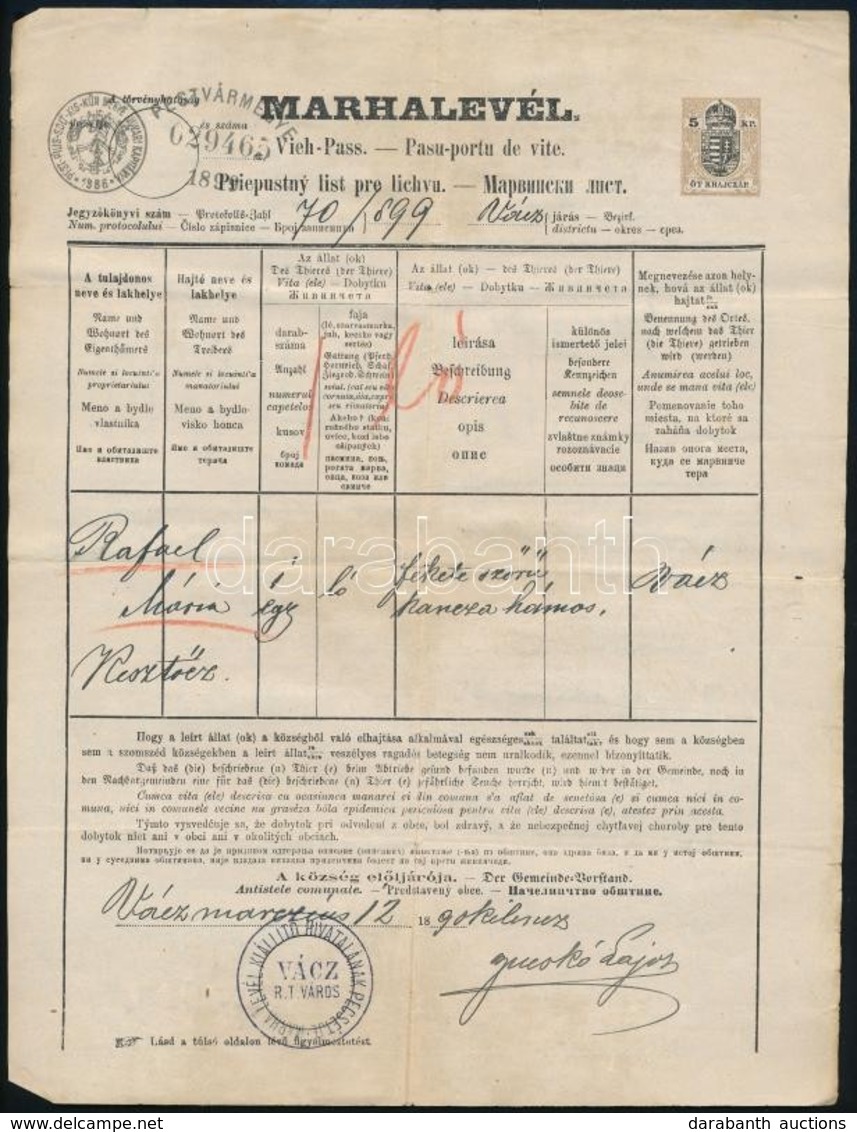 A törvényhatóság
PESTVÁRMEGYE
MARHALEVÉL.
és száma
029465
Vieh-Pass. — Pasu-portu de vite.
189
Priepustný list pre lichvu. — Марвински лист.
5 KR.
ÖT KRAJCZÁR
Jegyzőkönyvi szám — Protokolls-Zahl
Num. protocolului — Číslo zápisnice — Број записника
70/899
Vácz
járás — Bezirk.
districtu — okres — срез.
A tulajdonos neve és lakhelye
Name und Wohnort des Eigenthümers
Numele si locuinti'a proprietariului
Meno a bydlo vlastníka
Име и обиталиште властника
Hajtó neve és lakhelye
Name und Wohnort des Treibers
Numele si locuinti'a manatoriului
Meno a bydlovisko honca
Име и обиталиште терача
Az állat (ok)
Des Thieres (der Thiere)
Vita (ele) — Dobytku
Живинчета
darabszáma
Anzahl
numerul capetelor
kusov
број комада
faja
(ló, szarvasmarha, juh, kecske vagy sertés)
Gattung (Pferd, Hornvieh, Schaf, Ziege od. Schwein)
Az állat (ok) — des Thieres (der Thiere)
Vita (ele) — Dobytku — Живинчета
leírása
Beschreibung
Descrierea
opis
опис
különös ismertető jelei
besondere Kennzeichen
semnele deosebite de recunoscere
zvlaštne známky rozoznávacie
особити знаци
Megnevezése azon helynek, hová az állat (ok) hajtat
Benennung des Ortes, nach welchem das Thier (die Thiere) getrieben wird (werden)
Anumirea acelui loc, unde se mana vita (ele)
Pomenovanie toho miesta, na ktoré sa zaháňa dobytok
Назив онога места, куда се марвинче тера
1 ló
Rafael
Mária
Kesztöcz.
1
egy
ló
fekete szőrű
kancza hámos.
Vácz
darabanth
Hogy a leírt állat (ok) a községből való elhajtása alkalmával egészséges találtat és hogy sem a községben
sem a szomszéd községekben a leírt állat veszélyes ragadós betegség nem uralkodik, ezennel bizonyíttatik.
Daß das (die) beschriebene (n) Thier (e) beim Abtriebe gesund befunden wurde (n) und weder in der Gemeinde, noch in
den Nachbargemeinden eine für das (die) beschriebene (n) Thier (e) gefährliche Seuche herrscht, wird hiemit bestätiget.
Cumca vita (ele) descrisa cu ocasiunea manarei ei din comuna s'a aflat de senetósa (e) si cumca nici in comuna, nici in comunele vecine nu graséza bóla epidemica periculósa pentru vita (ele) descrisa (e), atestez prin acesta.
Týmto vysvedčuje sa, že dobytok pri odvedení z obce, bol zdravý, a že nebezpečnej chytľavej choroby pre tento
dobytok niet ani v obci ani v okolitých obciach.
A község elöljárója. — Der Gemeinde-Vorstand.
Antistele comunale. — Predstavený obce. — Начелинчтво обштине.
Vácz marczius 12 1890 kilencz
VÁCZ
R.T. VÁROS
MARHA LEVÉL KIÁLLITÓ HIVATALÁNAK PECSÉTJE
Lajos
Lásd a túlsó oldalon lévő figyelmeztetést.
darabanth auctions